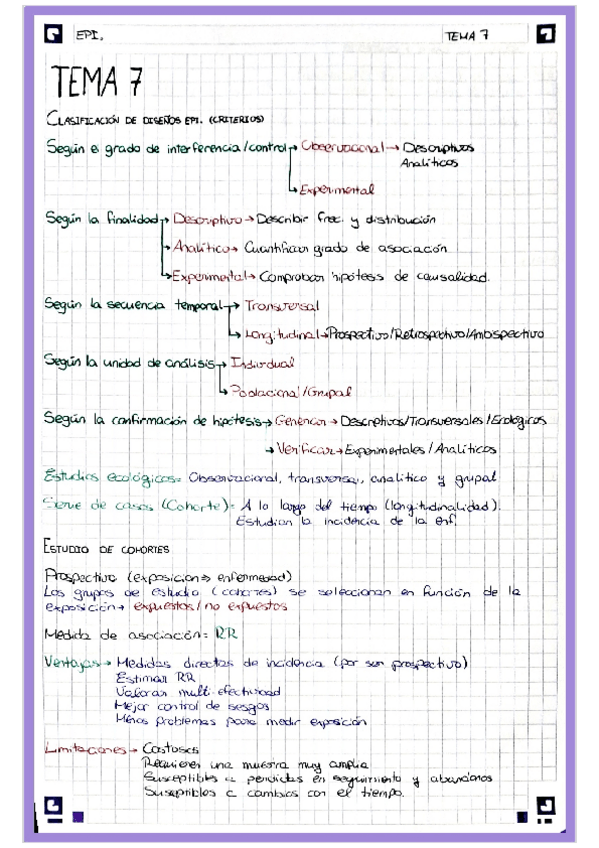 EPI.
TEMA 7
TEMA 7
CLASIFICACIÓN DE DISEÑOS EPI. (CRITERIOS)
Según el grado de interferencia/control → Observacional → Descriptivos
Analíticos
→ Experimental
Según la finalidad → Descriptivo → Describir frec. y distribución
→ Analítico → Cuantifican grado de asociación
→ Experimental → Comprobar hipótesis de causalidad.
Según la secuencia temporal → Transversal
→ Longitudinal → Prospectivo/Retrospectivo/Ambispectivo
Según la unidad de análisis → Individual
→ Poblacional/Grupal
Según la confirmación de hipótesis → Generan → Descriptivos/Transversales/Ecológicos
→ Verifican → Experimentales/Analíticos
Estudios ecológicos = Observacional, transversal, analítico y grupal
Serie de casos (Cohorte) = A lo largo del tiempo (longitudinalidad).
Estudian la incidencia de la enf.
ESTUDIO DE COHORTES
Prospectivo (exposición ⇒ enfermedad)
Los grupos de estudio (cohortes) se seleccionan en función de la
exposición → expuestos/no expuestos
Medida de asociación = RR
Ventajas → Medidas directas de incidencia (por ser prospectivo)
Estiman RR
Valoran multi-efectividad
Mejor control de sesgos
Menos problemas para medir exposición
Limitaciones → Costosos
Requieren una muestra muy amplia
Susceptibles a perdidas en seguimiento y abandonos
Susceptibles a cambios con el tiempo.